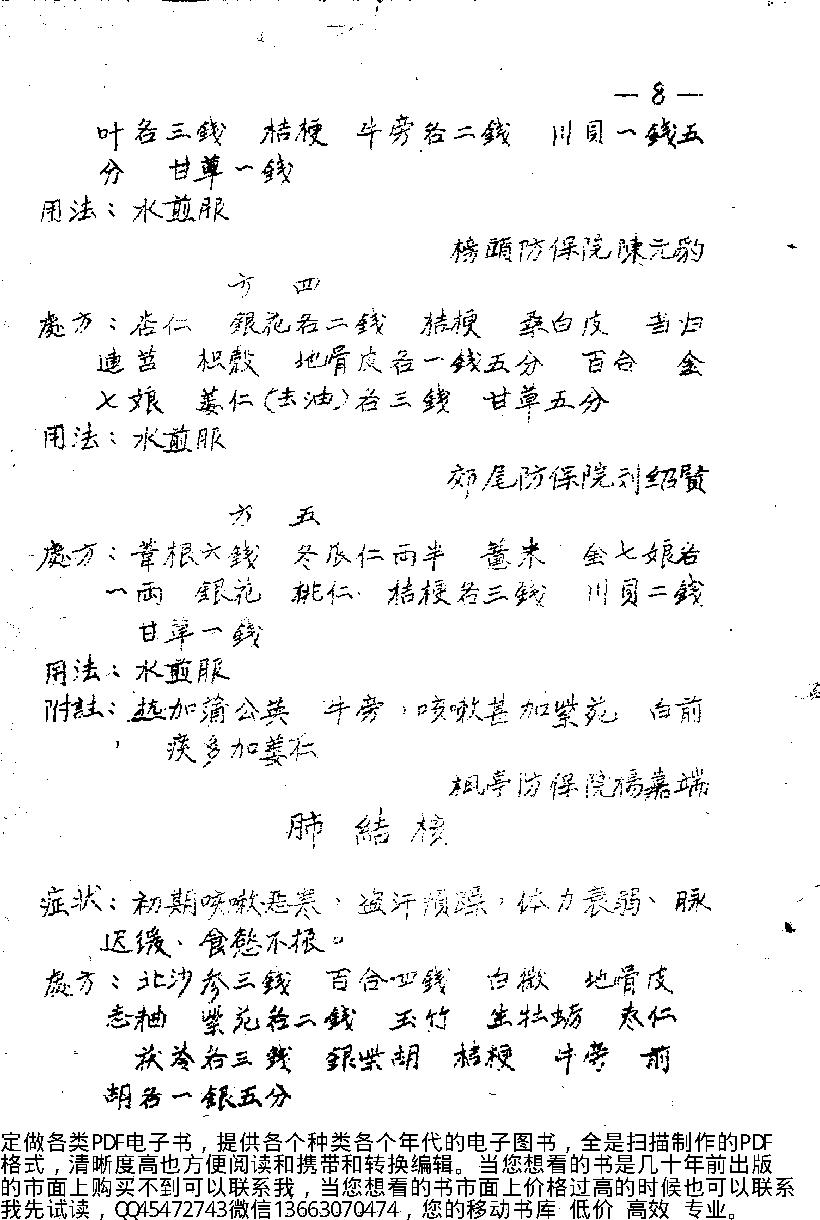 —8—
叶各三錢 桔梗 牛旁各二錢 川貝一錢五
分 甘草一錢
用法：水煎服
榜頭防保院陳元豹
方 四
處方：杏仁 銀花各二錢 桔梗 桑白皮 当归
連翹 枳殼 地骨皮各一錢五分 百合 金
七娘 蔞仁(去油)各三錢 甘草五分
用法：水煎服
郊尾防保院刘紹賢
方 五
處方：葦根六錢 冬瓜仁兩半 薏米 金七娘各
一兩 銀花 桃仁 桔梗各三錢 川貝二錢
甘草一錢
用法：水煎服
附註：加蒲公英 牛旁，咳嗽甚加紫苑 白前
，痰多加蔞仁
楓亭防保院楊嘉端
肺 結 核
症状：初期咳嗽惡寒，盗汗煩躁，体力衰弱、脉
迟缓、食慾不振。
處方：北沙参三錢 百合四錢 白薇 地骨皮
志柚 紫苑各二錢 玉竹 生牡蛎 枣仁
茯苓各三錢 銀柴胡 桔梗 牛旁 前
胡各一銀五分
定做各类PDF电子书，提供各个种类各个年代的电子图书，全是扫描制作的PDF
格式，清晰度高也方便阅读和携带和转换编辑。当您想看的书是几十年前出版
的市面上购买不到可以联系我，当您想看的书市面上价格过高的时候也可以联系
我先试读，QQ45472743微信13663070474，您的移动书库 低价 高效 专业。